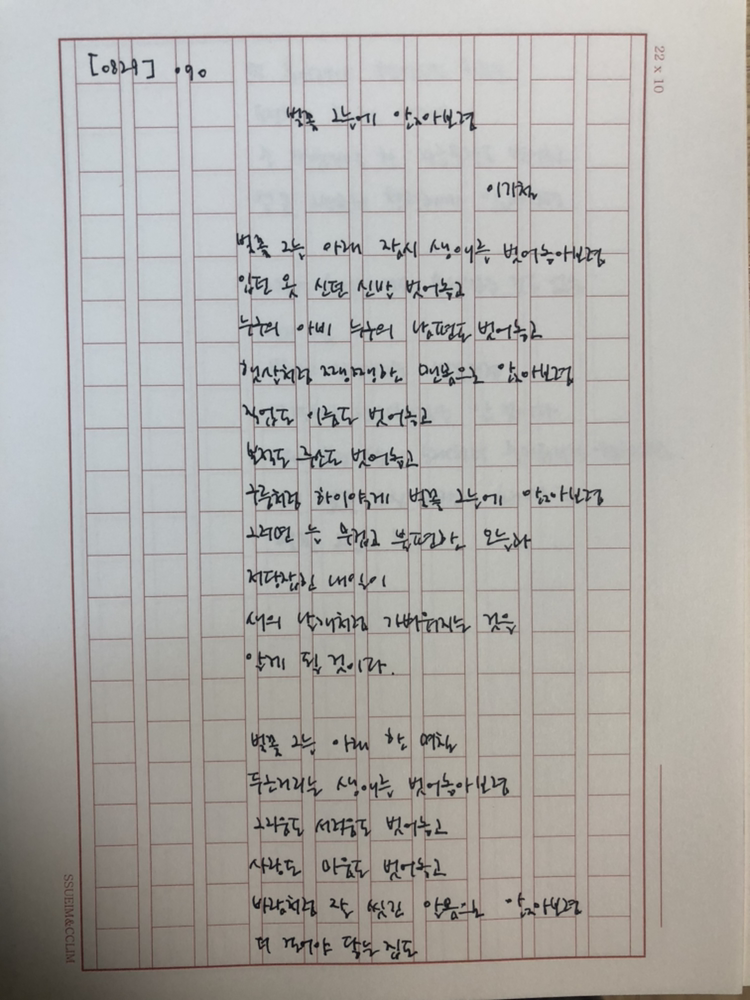 [0829] .90
22 x 10
벚꽃 그늘에 앉아보렴
이기철
벚꽃 그늘 아래 잠시 생애를 벗어놓아보렴
입던 옷 신던 신발 벗어놓고
누구의 아비 누구의 남편도 벗어놓고
햇살처럼 쨍쨍한 맨몸으로 앉아보렴
직업도 이름도 벗어놓고
본적도 주소도 벗어놓고
구름처럼 하이얗게 벚꽃 그늘에 앉아보렴
그러면 늘 무겁고 불편한 오늘과
저당잡힌 내일이
새의 날개처럼 가벼워지는 것을
알게 될 것이다.
벚꽃 그늘 아래 한 며칠
두근거리는 생애를 벗어놓아보렴
그리움도 서러움도 벗어놓고
사랑도 미움도 벗어놓고
바람처럼 잘 씻긴 알몸으로 앉아보렴
더 걸어야 닿는 집도
SSUEIM&CCLIM